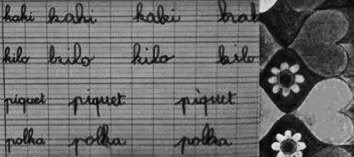 kaki kaki kaki
kilo kilo kilo kilo
piquet piquet piquet
polka polka polka